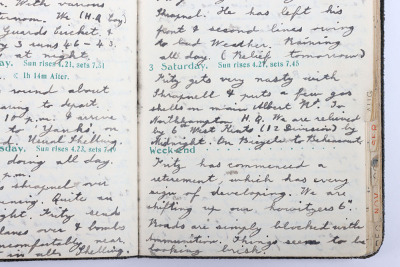 With various
ternoon. We (H.Q. Coy)
Guards Cricket, &
by 3 runs 46-43.
at night.
day. Sun rises 4.21, sets 7.51
1h 14m After.
round about
to depart.
10 p.m. I arrive
to Yanks, on
Usual Shelling.
sday. Sun rises 4.23, sets 7.4
doing all day.
p.m.
shrapnel over
Quite in
ght. Fritz sends
over & bombs
uncomfortably near
in all. Shelling.
Shrapnel. He has left his
front & second lines owing
to bad Weather. Raining
all day. (Relief tomorrow)
3 Saturday. Sun rises 4.25, sets 7.45
Fritz gets very nasty with
Shrapnell & puts a few gas
shells on main Albert Rd. To
Northampton H.Q. We are relieved
by 6th West Kents (12 Division) by
Midnight. On Bicycles to
Week-end
Fritz has commenced a
retirement which has every
sign of developing. We are
shifting up our howitzers 6"
Roads are simply blocked with
Ammunition. Things seem to be
looking brisk.